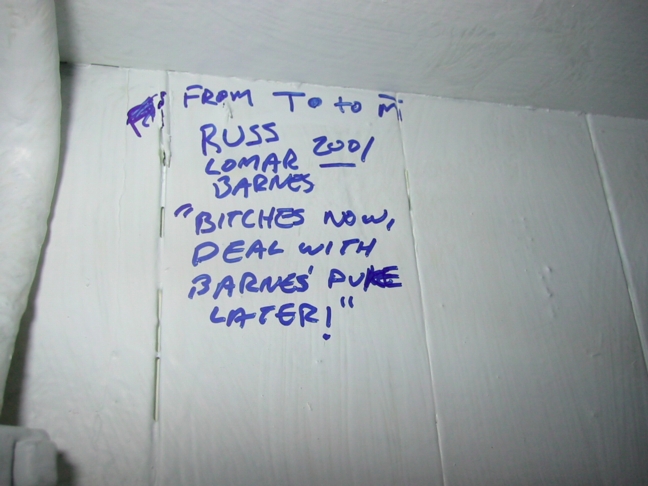 FROM TO to Mi
RUSS
LOMAR 2001
BARNES
"BITCHES NOW,
DEAL WITH
BARNES' PUKE
LATER!"